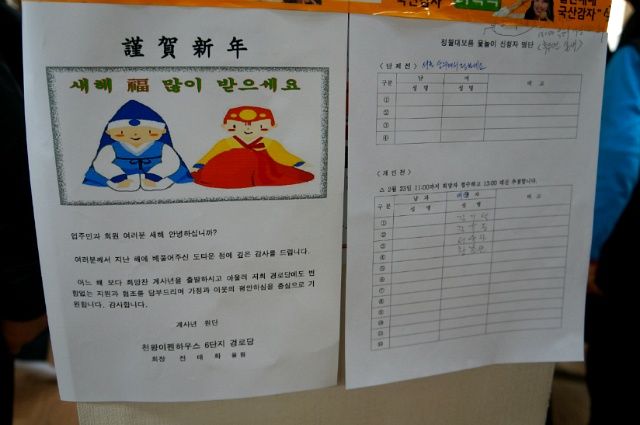 謹賀新年
새해 福 많이 받으세요
입주민과 회원 여러분 새해 안녕하십니까?
여러분께서 지난 해에 베풀어주신 도타운 정에 깊은 감사를 드립니다.
어느 해 보다 희망찬 계사년을 출발하시고 아울러 저희 경로당에도 변
함없는 지원과 협조를 당부드리며 가정과 이웃의 평안하심을 충심으로 기
원합니다. 감사합니다.
계사년 원단
천왕이펜하우스 6단지 경로당
회장 전태화 올림
국산감자
국산감자"
정월대보름 윷놀이 신청자 명단
< 단체전 >
구분 남 여 비고
성명 성명
①
②
③
④
< 개인전 >
2월 23일 11:00까지 희망자 접수하고 13:00 대진 추첨합니다.
구분 남자 여자 비고
성명 성명
①
②
③
④
⑤
⑥
⑦
⑧
⑨
⑩